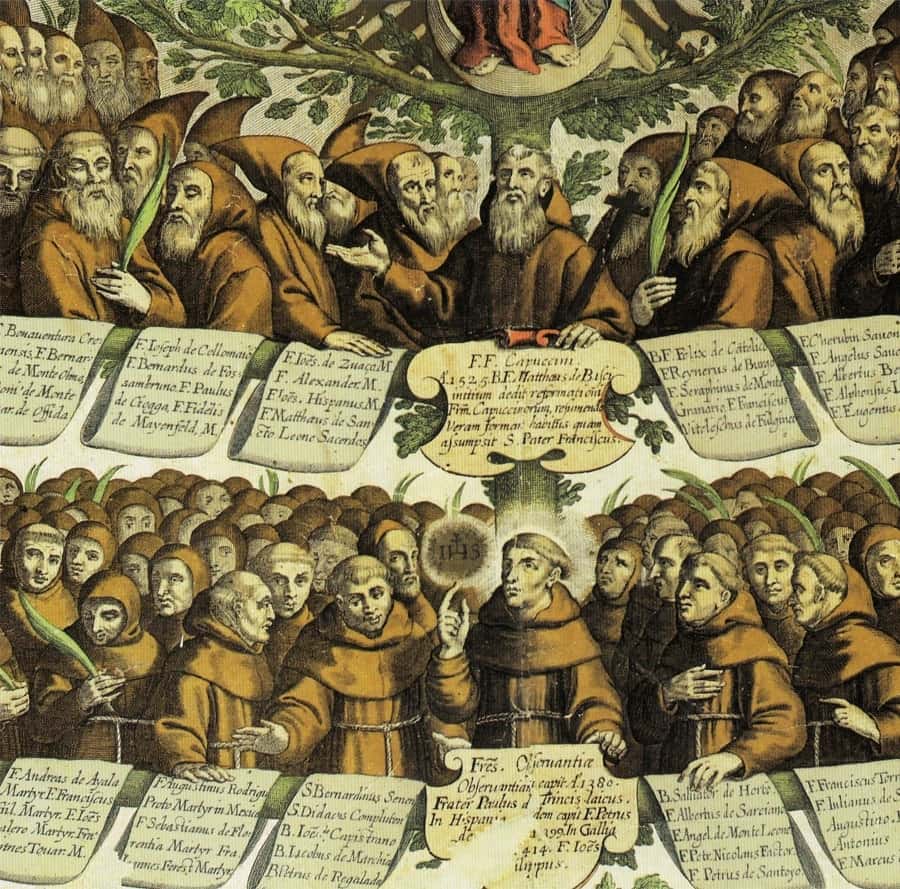 Bonaventura Cre
ensis, F. Bernar
de Monte Olmo
de Monte
de Offida
F. Ioseph de Collomaio
F. Bernardus de Fos
sambruno, F. Paulus
de Ciogga, F. Fidelis
de Mayenfeld, M.
F. Ioēs. de Zuaça M.
F. Alexander. M.
F. Ioēs. Hispanus M.
F. Matthæus de San
cto Leone Sacerdos
F.F. Capuccini
A.1525. B.F. Matthæus de
initium dedit reformationi
Frm̄. Capuccinorum,
Veram formam habitus quam
assumpsit S. Pater Franciscus.
B.F. Felix de
F. Reynerus de Burgo
F. Seraphinus de Monte
Granario, F. Franciscus
de
F. Cherubin Savon
F. Angelus Savo
F. Albertus
F. Alphonsus L
F. Eugenius
IHS
F. Andreas de Ayala
Martyr F. Franciscus
Gil. Martyr. F. Ioēs
alero Martyr. Frn
nnes Touar. M.
F. Augustinus Rodrigu
Proto Martyr in Mexico
F. Sebastianus de Flor
entia Martyr Fra
Martyr
S. Bernardinus Senen
S. Didacus Compluten
B. Ioēs. Capistrano
B. Iacobus de Marchia
B. Petrus de Regalado
Frēs. Obseruantiæ
Obseruantiā cæpit A. 1380.
Frater Paulus d Trincis laicus.
In Hispania dem cæpit F. Petrus
de In Gallia
414. F. Ioēs
ilippus.
B. Saluator de Horte
F. Albertus de Sarciano
F. Angel. de Monte Leone
F. Petr. Nicolaus Factor.
F. Petrus de Santoyo.
F. Franciscus Torr
F. Iulianus de S
Augustino.
Antonius
F. Marcus